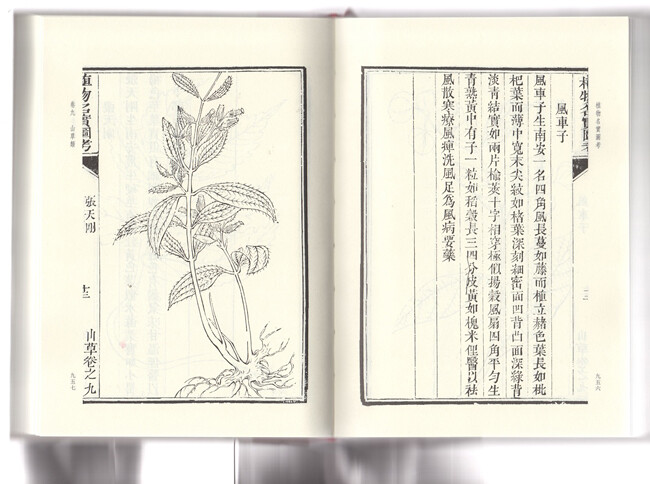 植物名實圖考
九五六
植物名實圖考
風車子
風車子生南安一名四角風長蔓如藤而植立赭色葉長如枇
杷葉而薄中寬末尖紋如楮葉深刻細密面凹背凸面深綠背
淡青結實如兩片榆莢十字相穿極似揚穀風扇四角平勻生
青熟黃中有子一粒如稻穀長三四分皮黃如槐米俚醫以祛
風散寒療風痺洗風足為風病要藥
植物名實圖考
張天剛
十三
山草卷之九
卷九 山草類
九五七